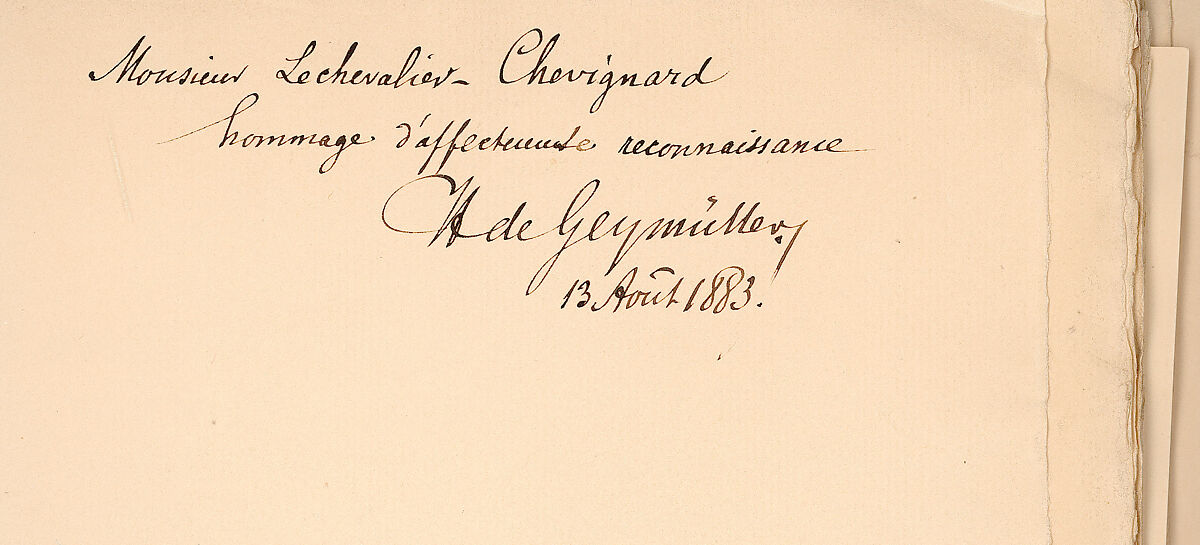 Monsieur Lechevalier-Chevignard
hommage d'affectueuse reconnaissance
H de Geymüller
13 Août 1883.